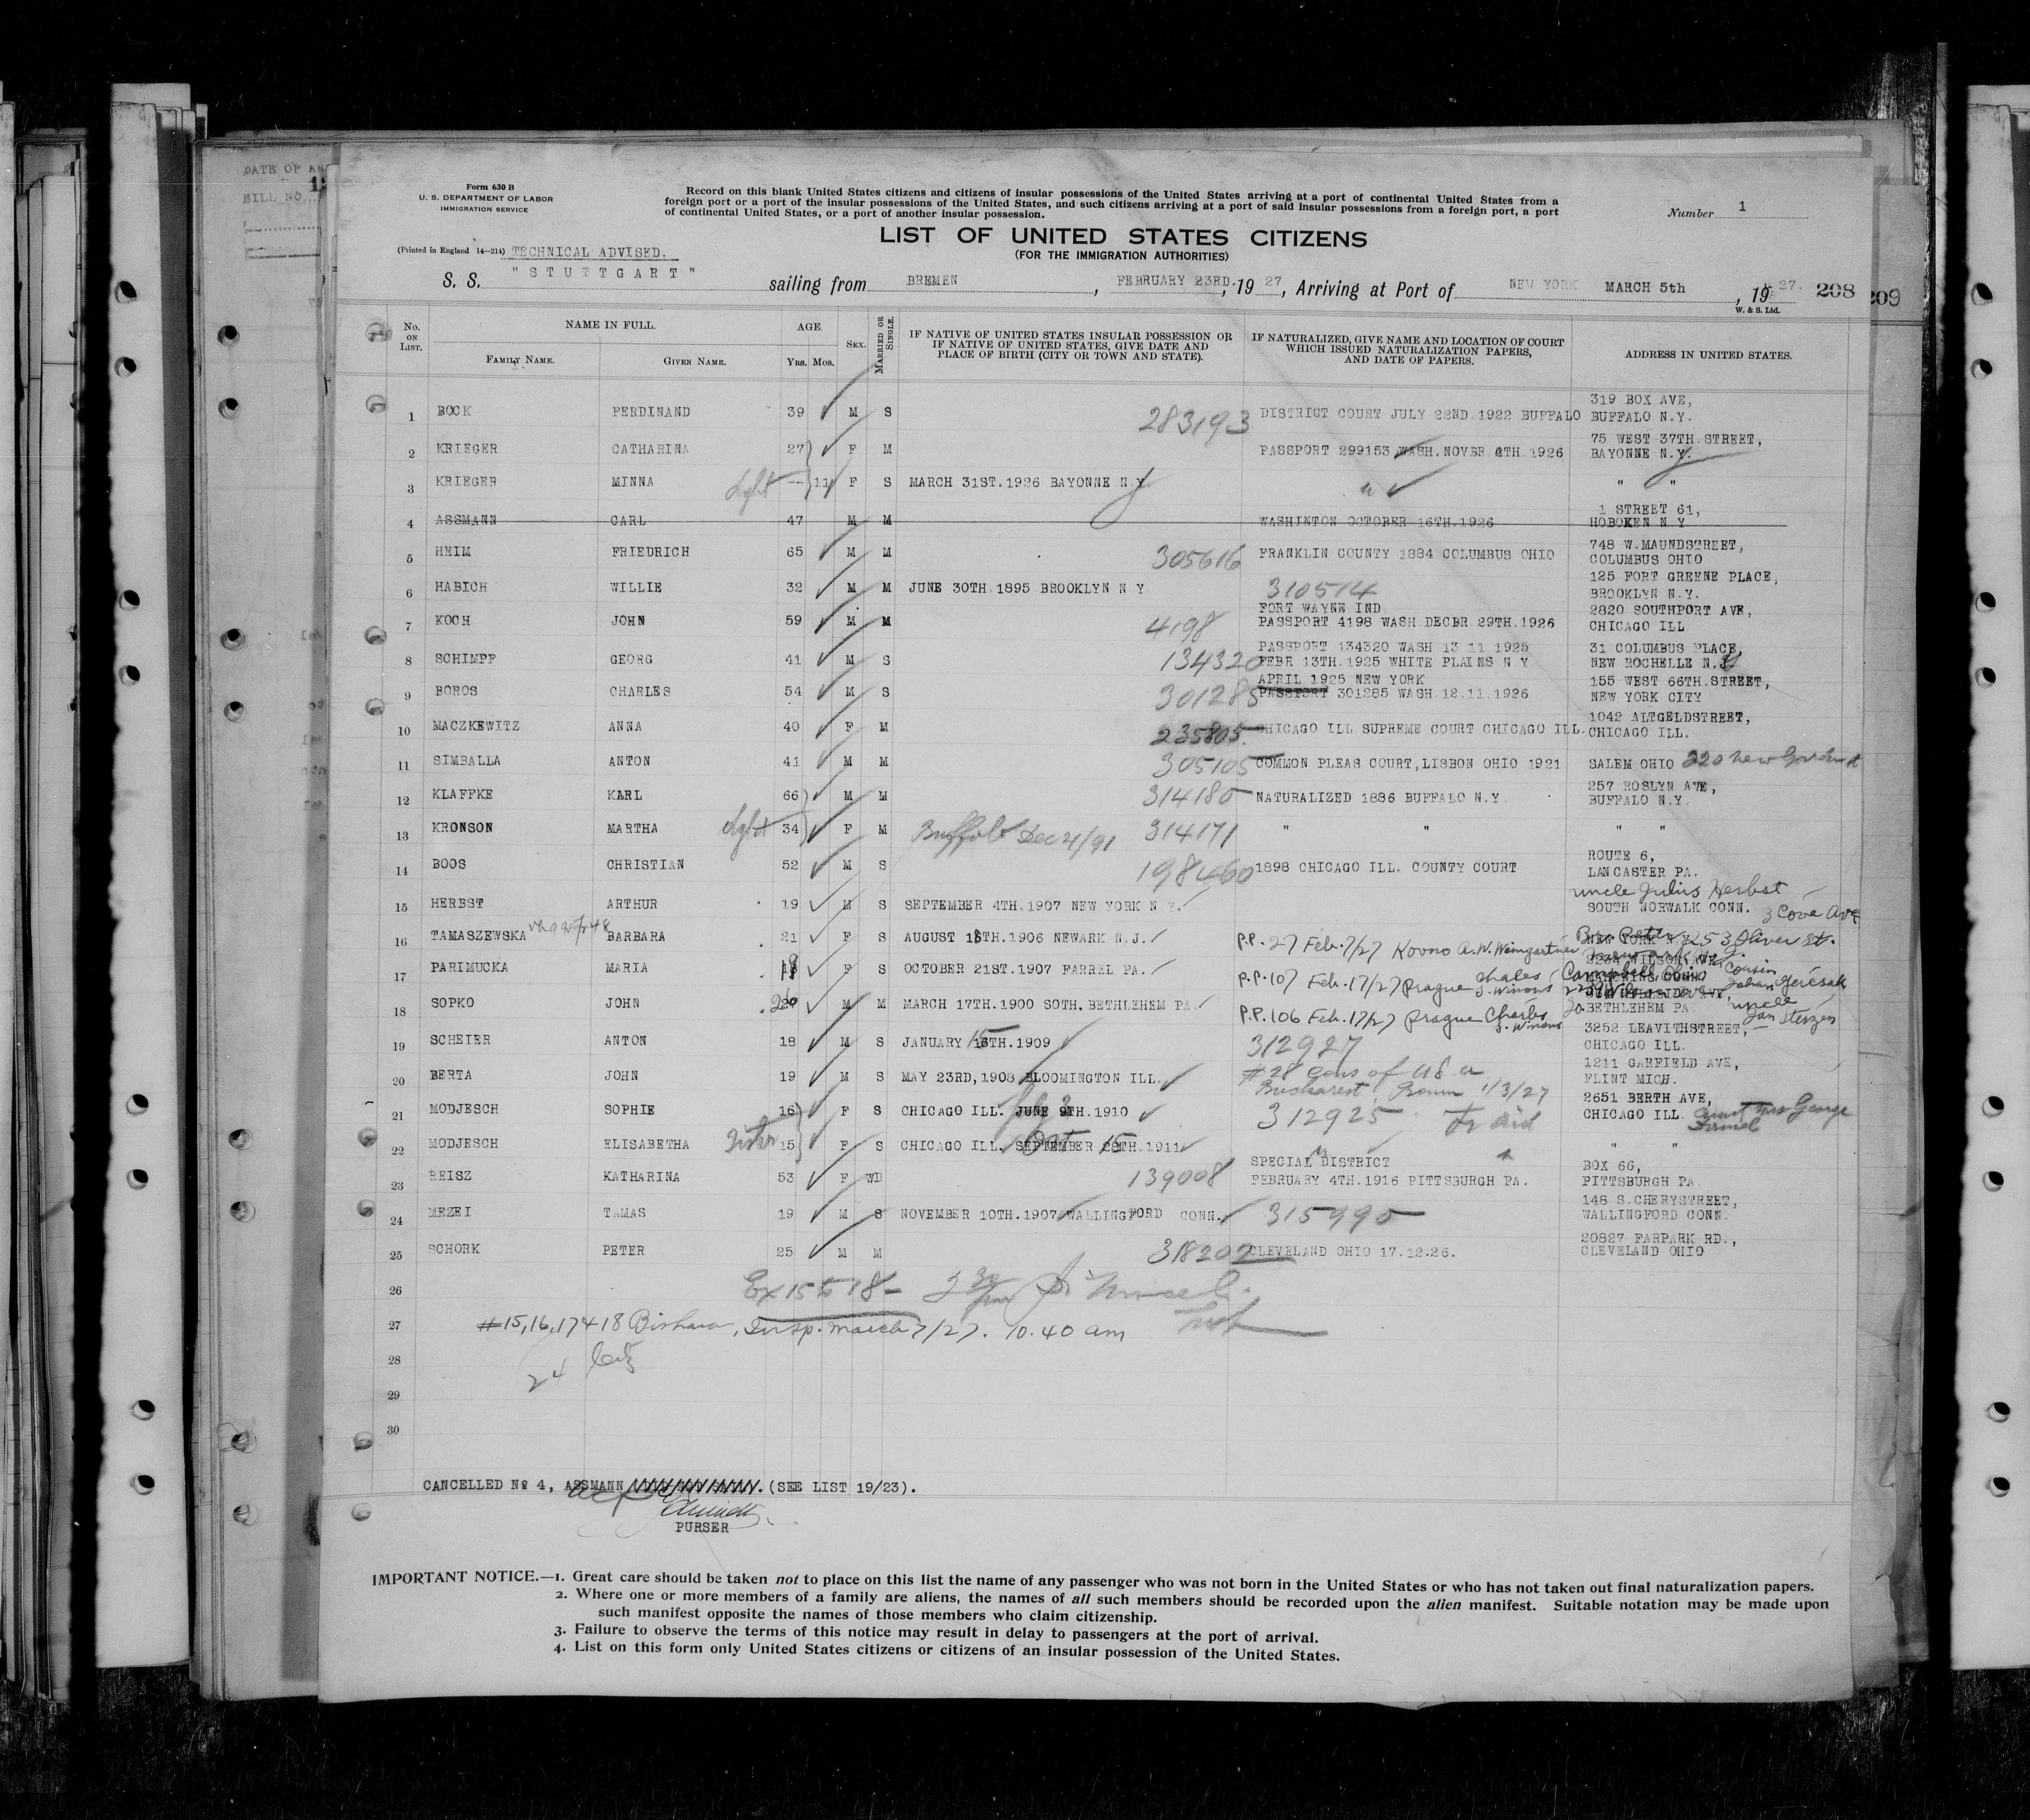 DATE OF AR
BILL NO.
Form 630 B
U. S. DEPARTMENT OF LABOR
IMMIGRATION SERVICE
Record on this blank United States citizens and citizens of insular possessions of the United States arriving at a port of continental United States from a
foreign port or a port of the insular possessions of the United States, and such citizens arriving at a port of said insular possessions from a foreign port, a port
of continental United States, or a port of another insular possession.
Number 1
LIST OF UNITED STATES CITIZENS
(FOR THE IMMIGRATION AUTHORITIES)
(Printed in England 14—214) TECHNICAL ADVISED.
S. S. "STUTTGART" sailing from BREMEN, FEBRUARY 23RD. 19 27, Arriving at Port of NEW YORK MARCH 5th, 19 27. 208 209
W. & S. Ltd.
No. ON LIST. NAME IN FULL. AGE. SEX. MARRIED OR SINGLE. IF NATIVE OF UNITED STATES INSULAR POSSESSION OR IF NATIVE OF UNITED STATES, GIVE DATE AND PLACE OF BIRTH (CITY OR TOWN AND STATE). IF NATURALIZED, GIVE NAME AND LOCATION OF COURT WHICH ISSUED NATURALIZATION PAPERS, AND DATE OF PAPERS. ADDRESS IN UNITED STATES.
FAMILY NAME. GIVEN NAME. Yrs. Mos.
1 BOCK FERDINAND 39 M S 283193 DISTRICT COURT JULY 22ND.1922 BUFFALO 319 BOX AVE, BUFFALO N.Y.
2 KRIEGER CATHARINA 27 F M PASSPORT 299153 WASH.NOVBR 4TH.1926 75 WEST 37TH.STREET, BAYONNE N.Y.
3 KRIEGER MINNA dght — 11 F S MARCH 31ST.1926 BAYONNE N.Y. " " "
4 ASSMANN CARL 47 M M WASHINTON OCTOBER 16TH.1926 1 STREET 61, HOBOKEN N Y
5 HEIM FRIEDRICH 65 M M 305616 FRANKLIN COUNTY 1884 COLUMBUS OHIO 748 W.MAUNDSTREET, COLUMBUS OHIO
6 HABICH WILLIE 32 M M JUNE 30TH.1895 BROOKLYN N Y 310514 125 FORT GREENE PLACE, BROOKLYN N.Y.
7 KOCH JOHN 59 M M 4198 FORT WAYNE IND PASSPORT 4198 WASH.DECBR.29TH.1926 2820 SOUTHPORT AVE, CHICAGO ILL
8 SCHIMPF GEORG 41 M S 134320 PASSPORT 134320 WASH 13 11 1925 FEBR 13TH.1925 WHITE PLAINS N Y 31 COLUMBUS PLACE, NEW ROCHELLE N.Y
9 BOROS CHARLES 54 M S 301285 APRIL 1925 NEW YORK PASSPORT 301285 WASH.12.11.1926 155 WEST 66TH.STREET, NEW YORK CITY
10 MACZKEWITZ ANNA 40 F M 235805 CHICAGO ILL SUPREME COURT CHICAGO ILL. 1042 ALTGELDSTREET, CHICAGO ILL.
11 SIMBALLA ANTON 41 M M 305105 COMMON PLEAS COURT,LISBON OHIO 1921 SALEM OHIO 220 New Gourden st
12 KLAFFKE KARL 66 M M 314180 NATURALIZED 1886 BUFFALO N.Y. 257 ROSLYN AVE, BUFFALO N.Y.
13 KRONSON MARTHA dght 34 F M Buffalo Dec 4/91 314171 " " " "
14 BOOS CHRISTIAN 52 M S 198460 1898 CHICAGO ILL. COUNTY COURT ROUTE 6, LANCASTER PA.
15 HERBST ARTHUR 19 M S SEPTEMBER 4TH.1907 NEW YORK N.Y. uncle Julius Herbst SOUTH NORWALK CONN. 3 Cove Ave
16 TAMASZEWSKA BARBARA 21 F S AUGUST 18TH.1906 NEWARK N.J. P.P. 27 Feb. 7/27 Kovno A.W. Weimgartner NEW YORK N.Y. 253 Oliver St.
17 PARIMUCKA MARIA 19 F S OCTOBER 21ST.1907 FARREL PA. P.P. 107 Feb. 17/27 Prague Chales S. Winans 2239 WILSON AVE Campbell Ohio Cousin Johan Jercsak
18 SOPKO JOHN 26 M M MARCH 17TH.1900 SOTH.BETHLEHEM PA. P.P. 106 Feb. 17/27 Prague Charles S. Winans BETHLEHEM PA uncle Jan Sterzen
19 SCHEIER ANTON 18 M S JANUARY 15TH.1909 312927 3252 LEAVITHSTREET, CHICAGO ILL.
20 BERTA JOHN 19 M S MAY 23RD,1908 BLOOMINGTON ILL. #28 Cons of U S a Bucharest, Roum 1/3/27 1211 GARFIELD AVE, FLINT MICH.
21 MODJESCH SOPHIE 16 F S CHICAGO ILL. JUNE 9TH.1910 July 3 312925 2651 BERTH AVE, CHICAGO ILL. aunt Mrs George
22 MODJESCH ELISABETHA Sister 15 F S CHICAGO ILL. SEPTEMBER 28TH.1911 Oct 15 " "
23 REISZ KATHARINA 53 F WD 139008 SPECIAL DISTRICT FEBRUARY 4TH.1916 PITTSBURGH PA. BOX 66, PITTSBURGH PA.
24 MEZEI TAMAS 19 M S NOVEMBER 10TH.1907 WALLINGFORD CONN. 315990 148 S.CHERYSTREET, WALLINGFORD CONN.
25 SCHORK PETER 25 M M 318202 CLEVELAND OHIO 17.12.26. 20827 FARPARK RD., CLEVELAND OHIO
26 Ex 15 to 18
27 #15,16,17+18 Bishara, Insp. March 7/27. 10.40 am
28
24
29
30
CANCELLED No 4, ASSMANN (SEE LIST 19/23).
PURSER
IMPORTANT NOTICE.—1. Great care should be taken not to place on this list the name of any passenger who was not born in the United States or who has not taken out final naturalization papers.
2. Where one or more members of a family are aliens, the names of all such members should be recorded upon the alien manifest. Suitable notation may be made upon
such manifest opposite the names of those members who claim citizenship.
3. Failure to observe the terms of this notice may result in delay to passengers at the port of arrival.
4. List on this form only United States citizens or citizens of an insular possession of the United States.